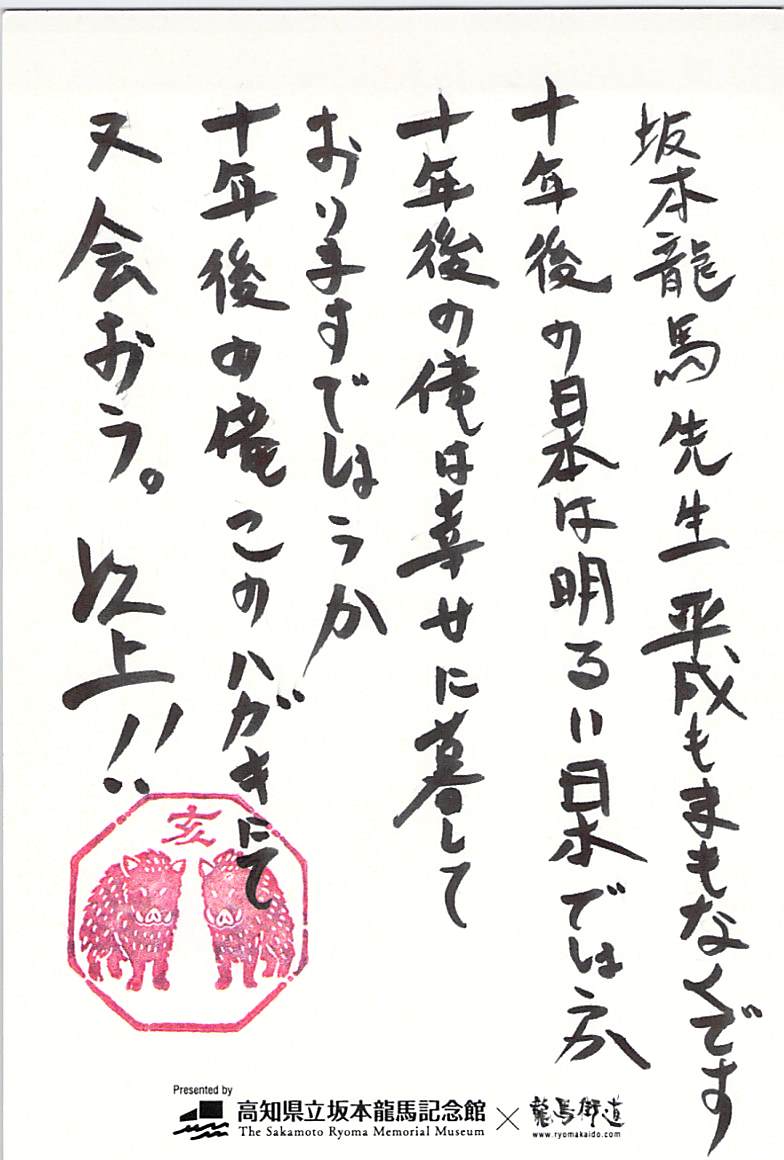 坂本龍馬先生 平成もまもなくです
十年後の日本は明るい日本でしょうか
十年後の俺は幸せに暮して
おりますでしょうか
十年後の俺このハガキにて
又会おう。 以上!!
亥
Presented by
高知県立坂本龍馬記念館
The Sakamoto Ryoma Memorial Museum
×
龍馬街道
www.ryomakaido.com